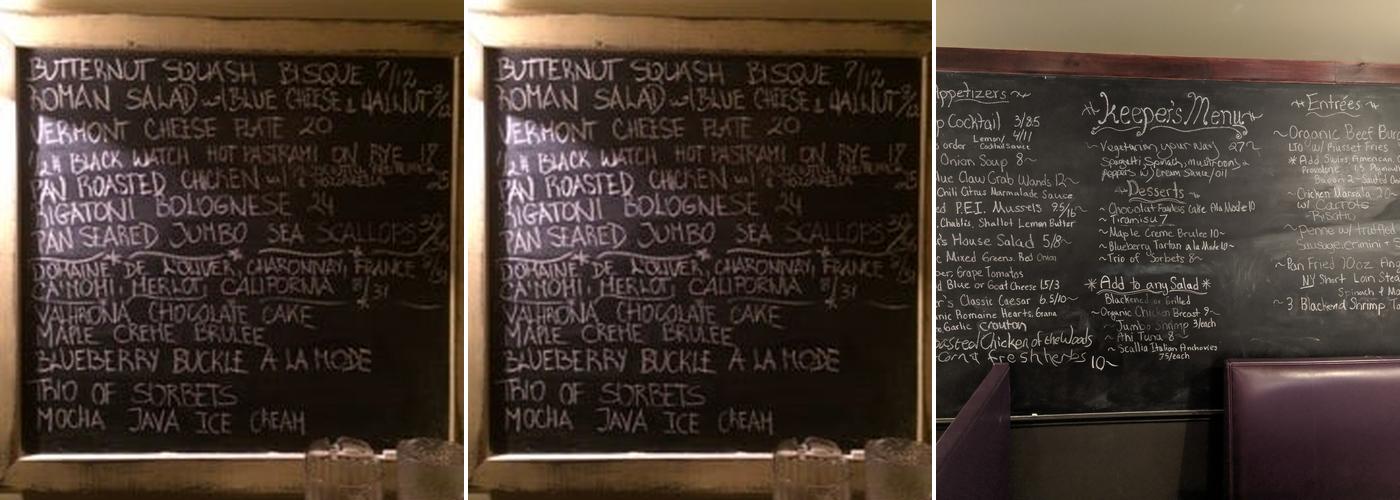 BUTTERNUT SQUASH BISQUE 7/12
ROMAN SALAD w/ BLUE CHEESE & WALNUT
VERMONT CHEESE PLATE 20
BLACK WATCH HOT PASTRAMI ON RYE
PAN ROASTED CHICKEN
RIGATONI BOLOGNESE 24
PAN SEARED JUMBO SEA SCALLOPS
DOMAINE DE L'OLIVER, CHARONNAY, FRANCE
CA'MOHI, MERLOT CALIFORNIA 8/31
VALHRONA CHOCOLATE CAKE
MAPLE CREME BRULEE
BLUEBERRY BUCKLE A LA MODE
TRIO OF SORBETS
MOCHA JAVA ICE CREAM
BUTTERNUT SQUASH BISQUE 7/12
ROMAN SALAD w/ BLUE CHEESE & WALNUT
VERMONT CHEESE PLATE 20
BLACK WATCH HOT PASTRAMI ON RYE
PAN ROASTED CHICKEN
RIGATONI BOLOGNESE 24
PAN SEARED JUMBO SEA SCALLOPS
DOMAINE DE L'OLIVER, CHARONNAY, FRANCE
CA'MOHI, MERLOT CALIFORNIA 8/31
VALHRONA CHOCOLATE CAKE
MAPLE CREME BRULEE
BLUEBERRY BUCKLE A LA MODE
TRIO OF SORBETS
MOCHA JAVA ICE CREAM
ppetizers
Cocktail 3/8.5
Lemon 4/11
order Cocktail sauce
Onion Soup 8~
Claw Crab Wands 12~
Chili Citrus Marmalade Sauce
P.E.I. Mussels
Chablis, Shallot Lemon Butter
's House Salad 5/8~
Mixed Greens, Red Onion
Grape Tomatoes
Blue or Goat Cheese 1.5/3
's Classic Caesar 6.5/10~
Romaine Hearts, Grana
Garlic crouton
Chicken of the Woods
fresh herbs 10~
Keeper's Menu
~Vegetarian your way 27~
Spagetti, Spinach, mushrooms,
Peppers w/ Cream Sauce/oil
~Desserts~
~Chocolat Fourless Cake Ala Mode 10
~Tiramisu 7
~Maple Creme Brulee 10~
~Blueberry Tartan a la Mode 10~
~Trio of Sorbets 8~
*Add to any Salad*
Blackened or Grilled
~Organic Chicken Breast 9~
~Jumbo Shrimp 3/each
~Ahi Tuna 8~
~Scallia Italian Anchovies
.75/each
Entrées
~Organic Beef Bur
LTO w/ Russet Fries
*Add Swiss American
Provolone 1.5
Bacon 2~
~Chicken Marsala
w/ Carrots
~Risotto
~Penne w/ truffled
Sausage, crimini
~Pan Fried 10oz
NY Short Loin Stea
Spinach
~3 Blackend Shrimp Ta